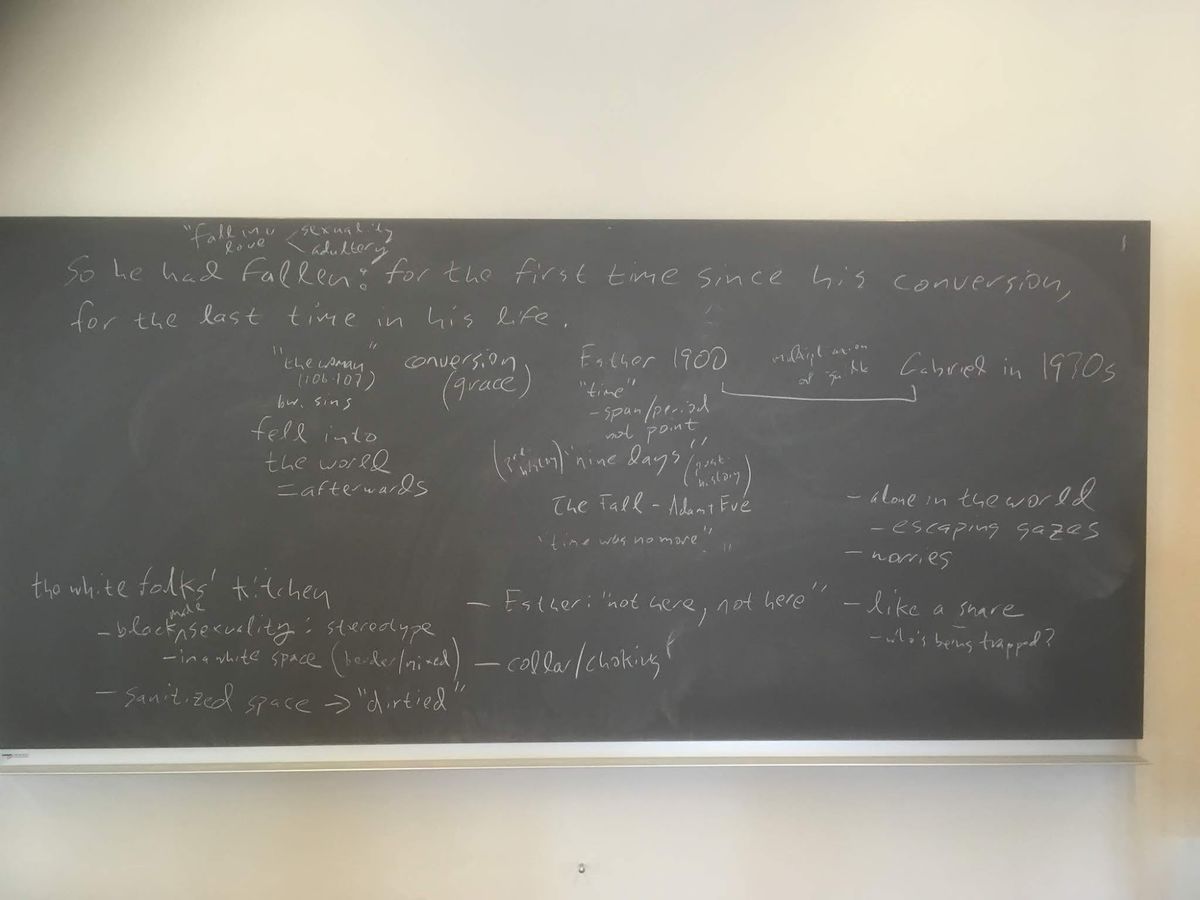 "fall in love < sexuality
adultery
So he had fallen: for the first time since his conversion,
for the last time in his life.
"the woman"
(106-107)
bw. sins
fell into
the world
= afterwards
conversion
(grace)
Esther 1900
"time"
- span/period
not point
"nine days"
The Fall - Adam + Eve
"time was no more"
Gabriel in 1930s
- alone in the world
- escaping gazes
- worries
- like a snare
- who's being trapped?
the white folks' kitchen
- black male sexuality: stereotype
- in a white space (border/mixed)
- sanitized space → "dirtied"
- Esther: "not here, not here"
- collar/choking